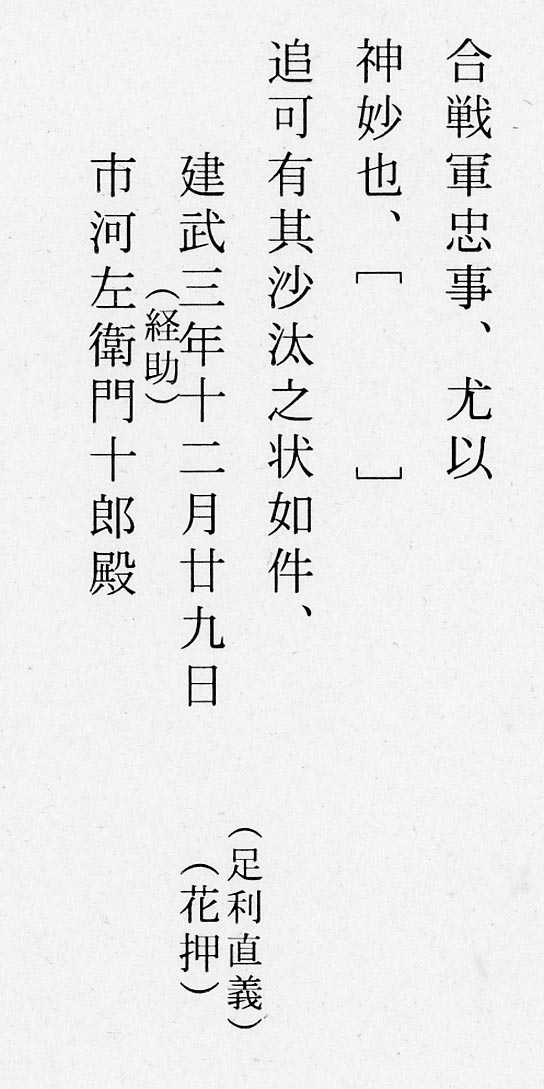 合戦軍忠事、尤以
神妙也、［　　　］
追可有其沙汰之状如件、
（足利直義）
建武三年十二月廿九日　（花押）
（経助）
市河左衛門十郎殿